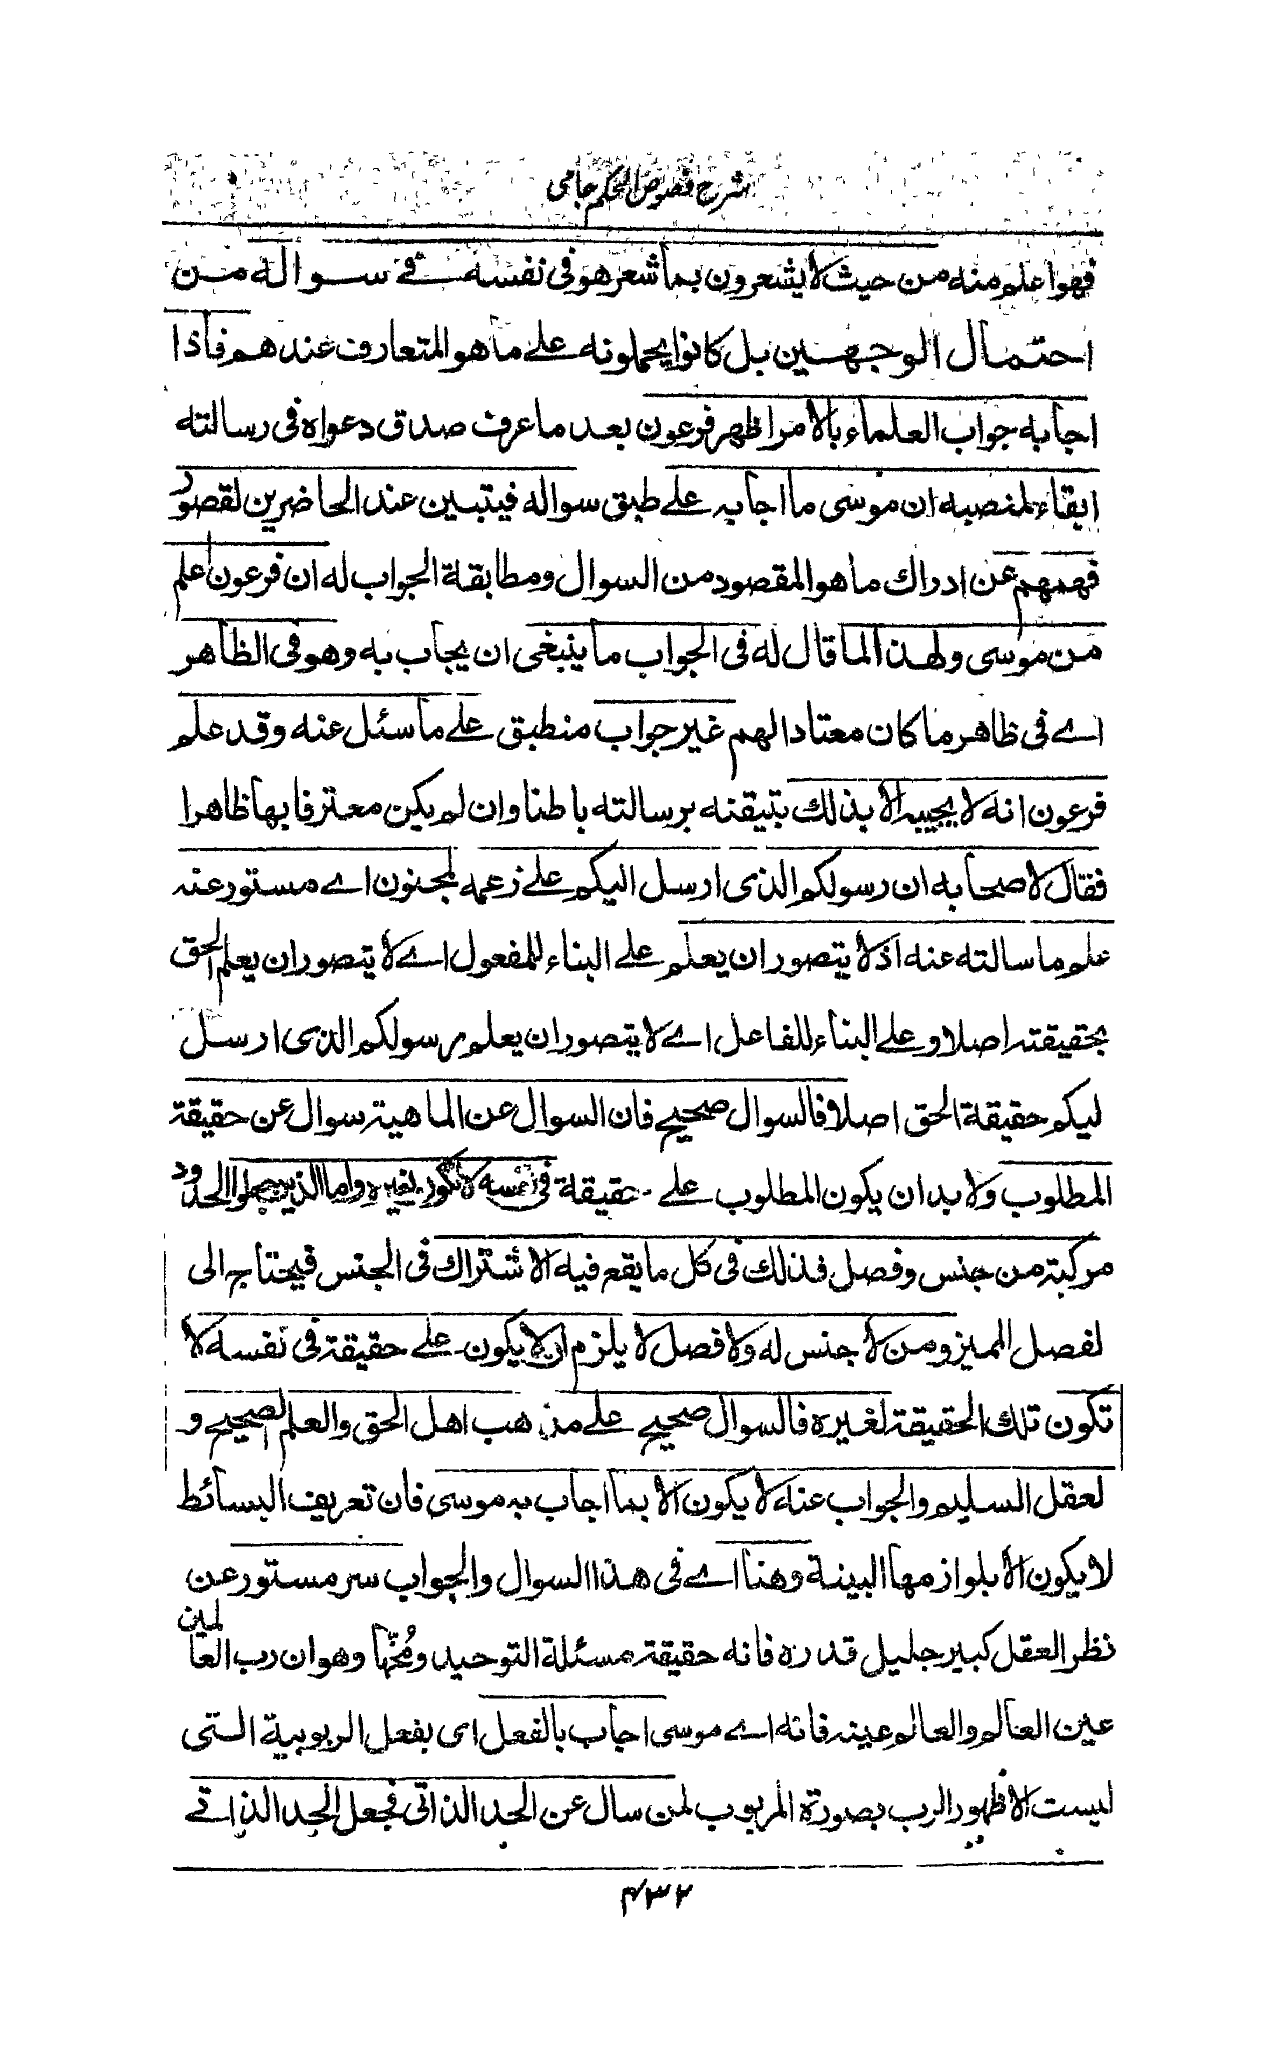 شرح فصوص الحكم جامى
فهو اعلم منه من حيث لا يشعرون بما شعر هو فى نفسه فے سواله من
احتمال الوجهين بل كانوا يحملونه علے ما هو المتعارف عندهم فاذا
اجابه جواب العلماء بالامر اظهر فرعون بعد ما عرف صدق دعواه فى رسالته
ابقاء لمنصبه ان موسى ما اجابه علے طبق سواله فيتبين عند الحاضرين لقصور
فهمهم عن ادراك ما هو المقصود من السوال ومطابقة الجواب له ان فرعون اعلم
من موسى ولهذا لما قال له فى الجواب ما ينبغى ان يجاب به وهو فى الظاهر
اے فى ظاهر ما كان معتادا لهم غير جواب منطبق علے ما سئل عنه وقد علم
فرعون انه لا يجيبه الا بذلك بتيقنه برسالته باطنا وان لم يكن معترفا بها ظاهرا
فقال لاصحابه ان رسولكم الذى ارسل اليكم علے زعمه لمجنون اے مستور عنه
علم ما سالته عنه اذ لا يتصور ان يعلم علے البناء للمفعول اے لا يتصور ان يعلم الحق
بحقيقته اصلا و علے البناء للفاعل اے لا يتصور ان يعلم رسولكم الذى ارسل
ليكم حقيقة الحق اصلا فالسوال صحيح فان السوال عن الماهية سوال عن حقيقة
المطلوب ولا بد ان يكون المطلوب علے حقيقة فى نفسه لا تكون لغيره واما الذين جعلوا الحدود
مركبة من جنس وفصل فذلك فى كل ما يقع فيه الاشتراك فى الجنس فيحتاج الى
لفصل المميز ومن لا جنس له ولا فصل لا يلزم ان لا يكون علے حقيقة فى نفسه لا
تكون تلك الحقيقة لغيره فالسوال صحيح علے مذهب اهل الحق والعلم الصحيح و
لعقل السليم والجواب عنه لا يكون الا بما اجاب به موسى فان تعريف البسائط
لا يكون الا بلوازمها البينة وهنا اے فى هذا السوال والجواب سر مستور عن
نظر العقل كبير جليل قدره فانه حقيقة مسئلة التوحيد ومُخّها وهو ان رب العالمين
عين العالم والعالم عينه فانه اے موسى اجاب بالفعل اى بفعل الربوبية التى
ليست الا ظهور الرب بصورة المربوب لمن سال عن الحد الذاتى فجعل الحد الذاتے
۴۳۲